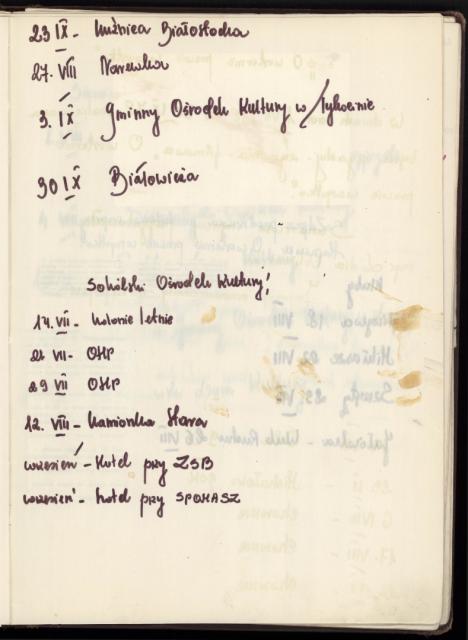 23 IX - Kuźnica Białostocka
27. VIII Narewka
3. IX Gminny Ośrodek Kultury w Tykocinie
30 IX Białowieża
Sokólski Ośrodek Kultury!
14. VII - kolonie letnie
22 VII - OHP
29 VII OHP
12. VIII - Kamionka Stara
wrzesień - Hotel przy ZSB
wrzesień - hotel przy SPOMASZ